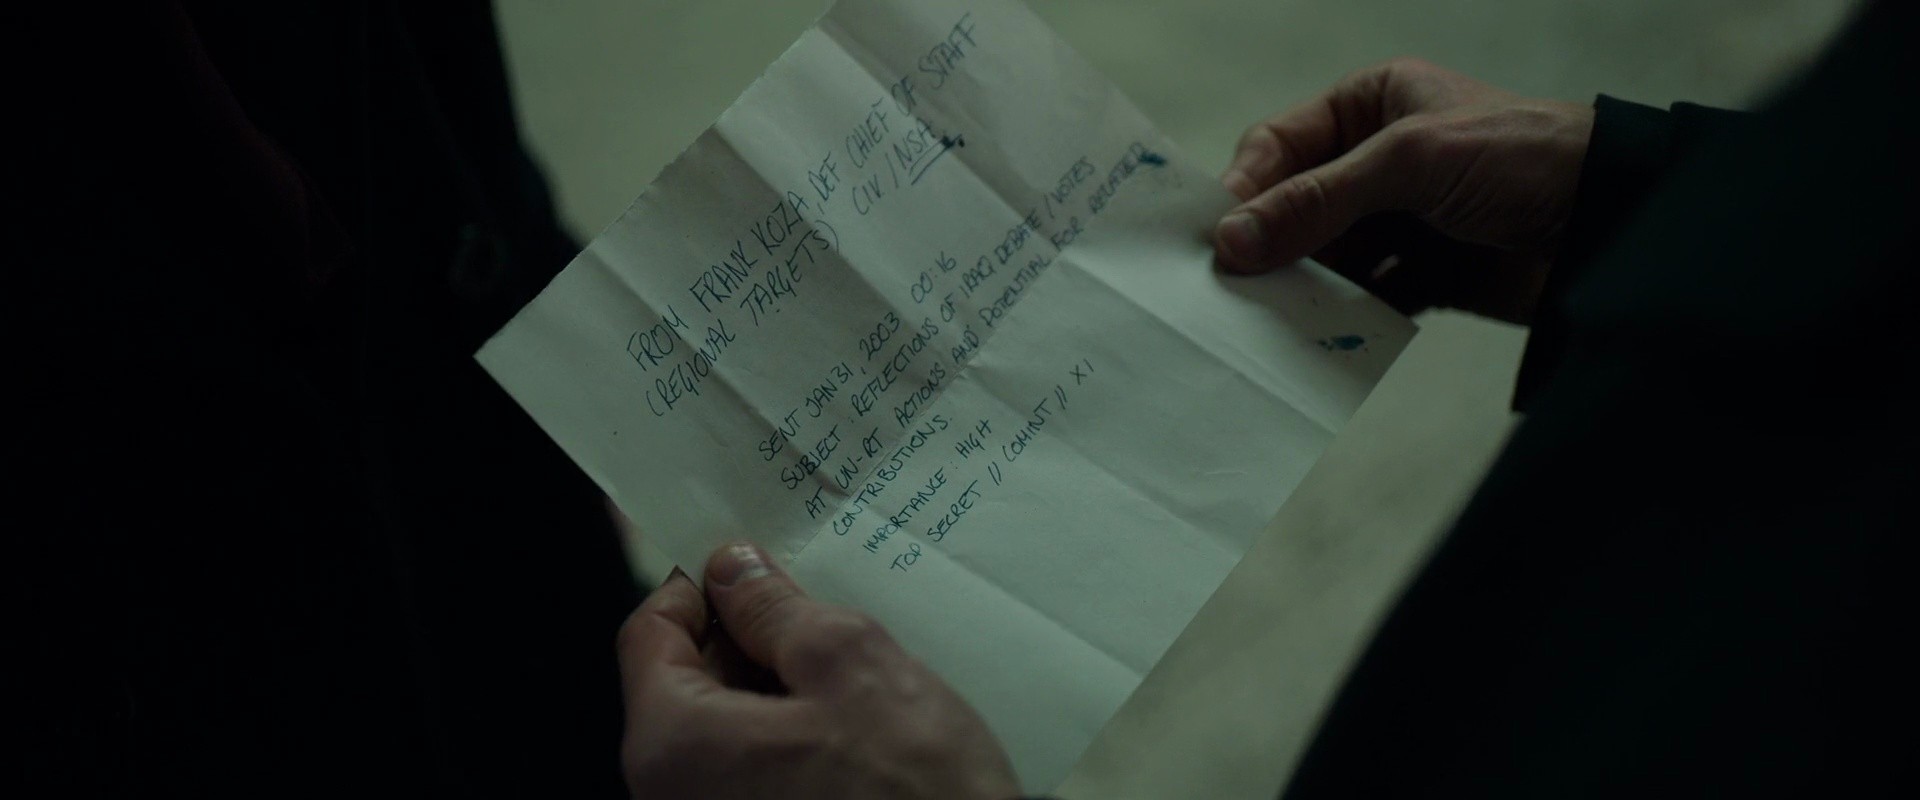 FROM FRANK KOZA, DEF CHIEF OF STAFF
(REGIONAL TARGETS) CIV / NSA.
SENT JAN 31, 2003 00:16
SUBJECT : REFLECTIONS OF IRAQ DEBATE / VOTES
AT UN-RT ACTIONS AND POTENTIAL FOR RELATED
CONTRIBUTIONS.
IMPORTANCE : HIGH
TOP SECRET // COMINT // X1